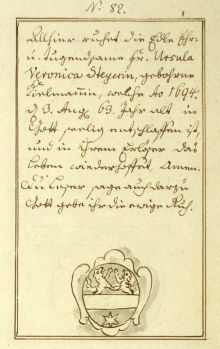 N. 82.
Allhier ruhet die Edle Ehr-
u. Tugendsame Fr. Ursula
Veronica Steyrin, gebohrne
Kielmannin, welche Ao 1694.
d. 3. Aug. 63. Jahr alt in
Gott seelig entschlaffen ist,
und in ihrem Erlöser das
Leben wiederhoffet, Amen.
Du Leser sage auch darzu
Gott gebe ihr die ewige Ruh.